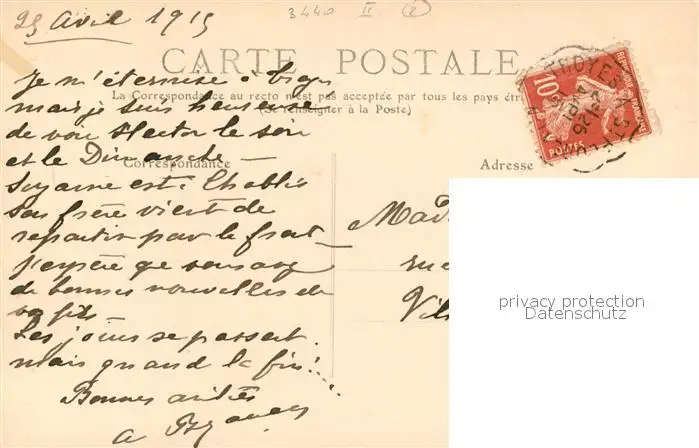 25 Avril 1915
3440 II
CARTE POSTALE
La Correspondance au recto n'est pas acceptée par tous les pays étr
(Se renseigner à la Poste)
Correspondance
Adresse
Je m'éternise à
mais je suis heureuse
de voir Hector le soir
et le Dimanche
Suzanne est à Chablis
son frère vient de
repartir pour le front
j'espère que vous avez
de bonnes nouvelles de
vos fils
Les jours se passent
mais quand la fin!
Bonnes amitiés
Mad
rue
Vil
10
REPUBLIQUE FRANÇAISE
POSTES
TROYES A
privacy protection
Datenschutz